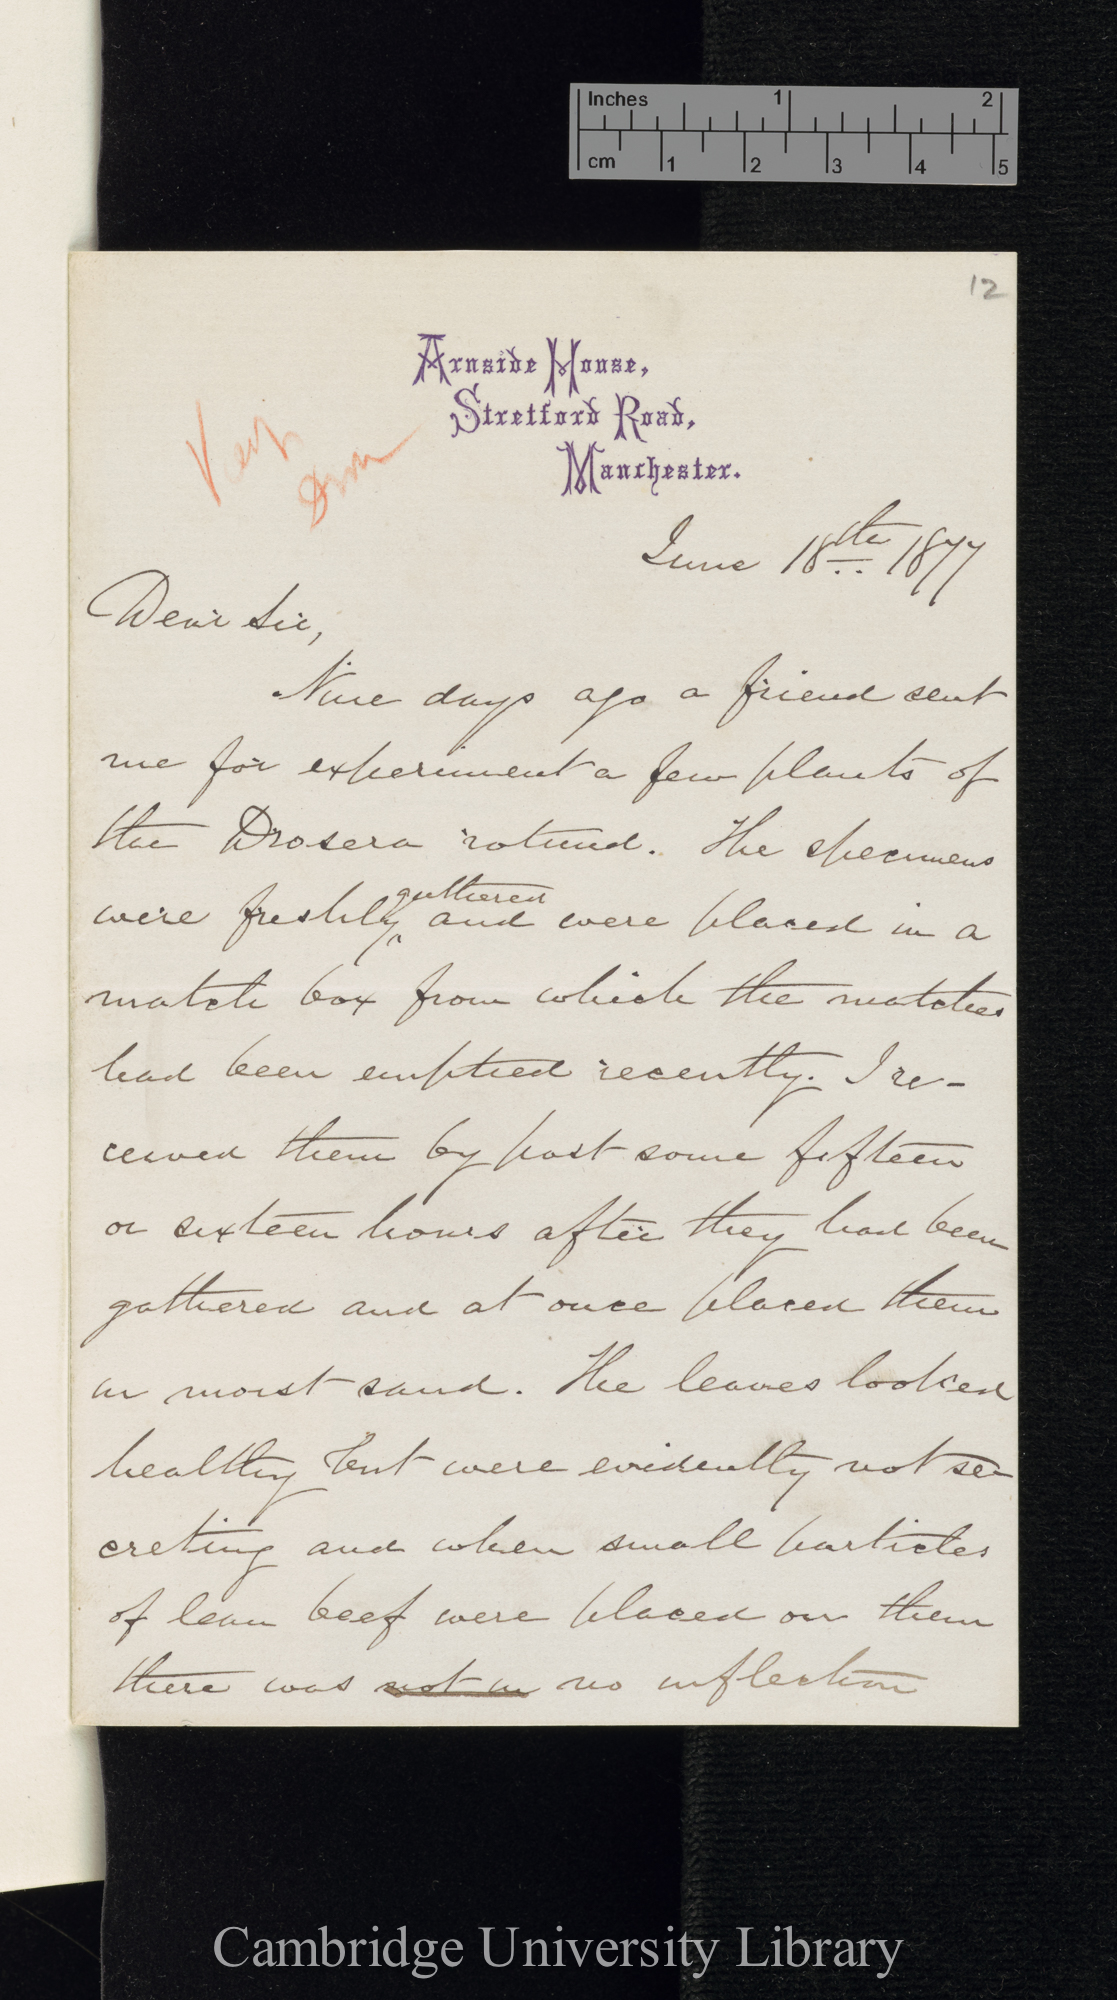 Inches 1 2
cm 1 2 3 4 5
12
Arnside House,
Stretford Road,
Manchester.
Keep
Dros
June 18th 1877
Dear Sir,
Nine days ago a friend sent
me for experiment a few plants of
the Drosera rotund. The specimens
were freshly gathered and were placed in a
match box from which the matches
had been emptied recently. I re-
ceived them by post some fifteen
or sixteen hours after they had been
gathered and at once placed them
in moist sand. The leaves looked
healthy but were evidently not se-
creting and when small particles
of lean beef were placed on them
there was not in no inflection
Cambridge University Library